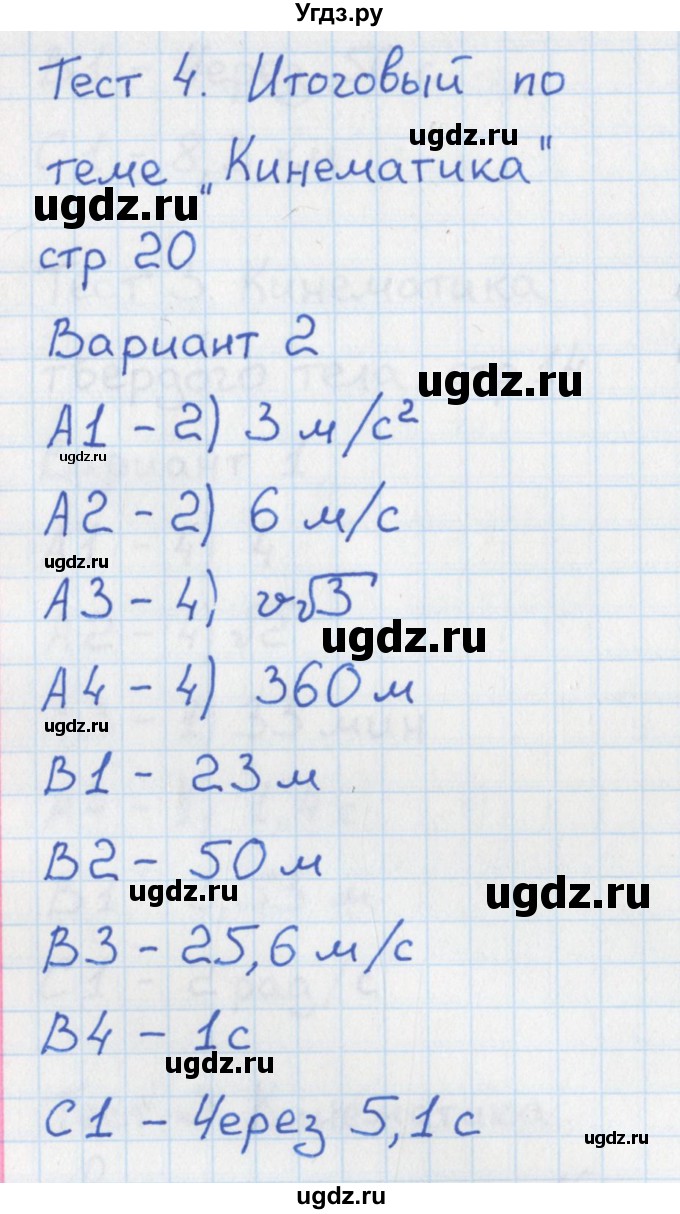 Угдз.ру
Тест 4. Итоговый по
ugdz.ru
теме „Кинематика"
ugdz.ru
стр 20
Вариант 2
ugdz.ru
А1 - 2) 3 м/с²
ugdz.ru
А2 - 2) 6 м/с
ugdz.ru
А3 - 4) v√3
ugdz.ru
А4 - 4) 360 м
ugdz.ru
В1 - 23 м
В2 - 50 м
ugdz.ru
ugdz.ru
В3 - 25,6 м/с
В4 - 1с
ugdz.ru
С1 - Через 5,1с
ugdz.ru
ugdz.ru